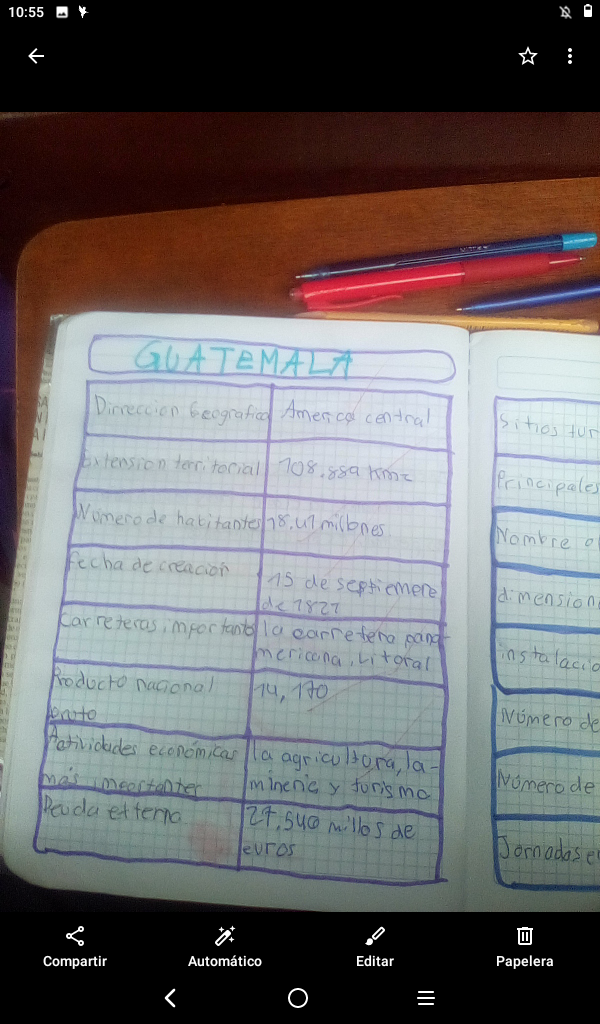 10:55
GUATEMALA
Dirreccion Geografica
America central
Extension territorial
108.889 Km2
Número de habitantes
18.41 millones
Fecha de creación
15 de septiemere
de 1821
Carreteras importante
la carretera pana-
mericana, Litoral
Producto nacional
bruto
14,170
Actividades económicas
más importantes
la agricultura, la-
mineria y turismo
Deuda externa
27,540 millos de
euros
Sitios tur
Principales
Nombre o
dimension
instalacio
Número de
Número de
Jornadas e
Compartir
Automático
Editar
Papelera